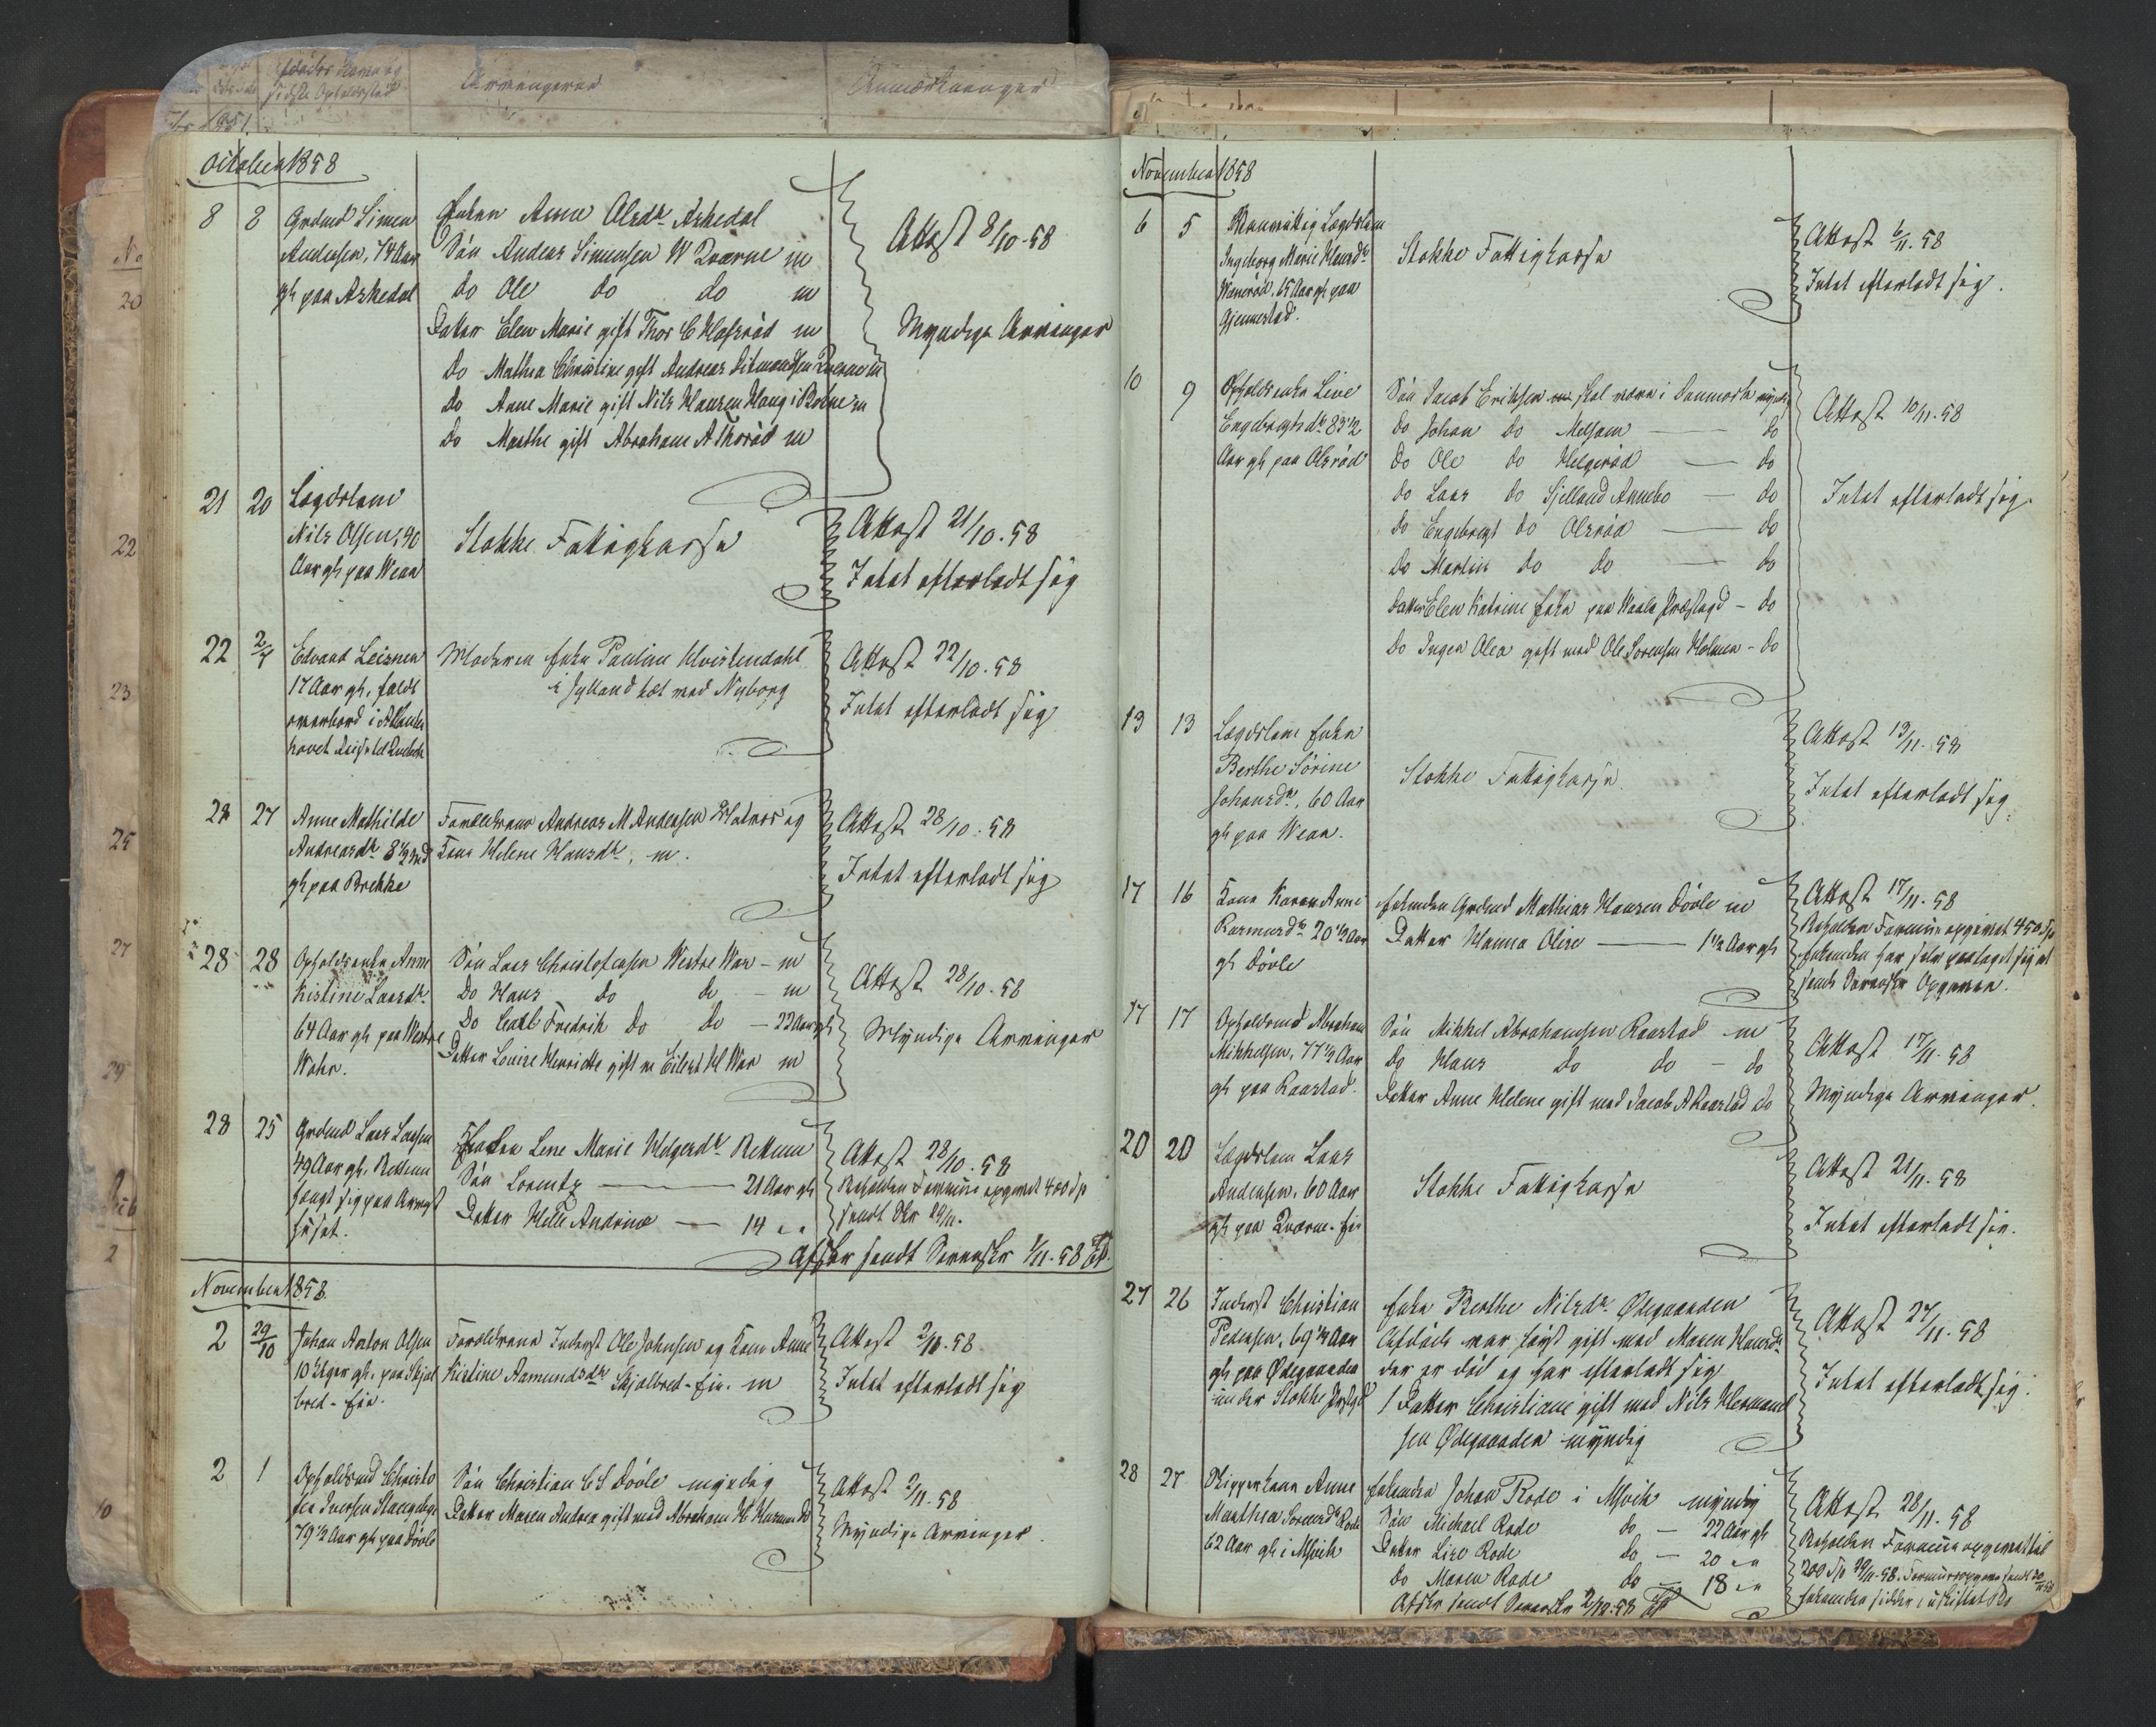 Afdødes Navn og
sidste Opholdssted
Arvingerne
Anmærkninger
October 1858
8 8 Grdmd Simen
Andersen, 74 Aar
gl paa Askedal
Enken Anne Olsdr Askedal
Søn Anders Simensen W Qværne m
do Ole do do m
Datter Elen Marie gift Thor C Hafsrød m
do Mathea Christine gift Andreas Qværne m
do Anne Marie gift Nils Hansen Haug i Botne m
do Marthe gift Abraham A Thorød m
Attest 8/10-58
Myndige Arvinger
21 20 Lægdslem
Nils Olsen, 40
Aar gl paa Wear
Stokke Fattigkasse
Attest 21/10.58
Intet efterladt sig
22 2/7 Edvard Leisner
17 Aar gl, faldt
overbord i Atlanter
havet
Moderen Enke Pauline Kvistendahl
i Jylland tæt ved Nyborg
Attest 22/10.58
Intet efterladt sig
28 27 Anne Mathilde
Andreasdr 8 1/2 Md
gl paa Brekke
Forældrene Andreas M Andersen og
Kone Helene Hansdr, m.
Attest 28/10.58
Intet efterladt sig
28 28 Opholdsenke Anne
Kirstine Larsdr
64 Aar gl paa Westre
Wahr.
Søn Lars Christofersen Westre War - m
Do Hans do do - m
Do Carl Fredrik do do - 22 Aar gl
Datter Louise Henriette gift m Eilert H War m
Attest 28/10.58
Myndige Arvinger
28 25 Grdmd Lars Larsen
49 Aar gl. Rettum
hængt sig paa Arrest
huset.
Enken Lene Marie Helgesdr Rettum
Søn Lorentz — 21 Aar gl
Datter Helle Andrine — 14 "
Attest 28/10.58
Beholden Formue opgivet 400 Sp
sendt Skr 29/11.
Afskr sendt Sorenskr 1/11.58
November 1858.
2 29/10 Johan Anton Olsen
10 Uger gl. paa Skjel
bred - eie.
Forældrene Inderst Ole Johnsen og Kone Anne
Kirstine Aamundsdr Skjelbred-eie. m
Attest 2/11.58
Intet efterladt sig
2 1 Opholdsmd Christo
fer Iversen Stangeby
79 1/2 Aar gl paa Døvle
Søn Christian C S Døvle myndig
Datter Maren Andrea gift med Abraham H do
Attest 2/11.58
Myndige Arvinger.
November 1858
6 5 Lægdslem
Ingeborg Marie Hansdr
Wanerød. 65 Aar gl paa
Gjennestad.
Stokke Fattigkasse
Attest 6/11.58
Intet efterladt sig.
10 9 Opholdsenke Live
Engebregtsdr 83 1/2
Aar gl paa Olsrød
Søn Jacob Eriksen skal være i Danmark myndig
do Johan do Melsom — do
do Ole do Helgerød — do
do Lars do Sjelland Annebo — do
do Engebregt do Olsrød — do
do Martin do do — do
Datter Elen Katrine Enke paa Waale Præstegd - do
do Inger Olea gift med Ole Sørensen Holmen - do
Attest 10/11.58
Intet efterladt sig.
13 13 Lægdslem Enke
Berthe Sørine
Johansdr, 60 Aar
gl paa Wear.
Stokke Fattigkasse.
Attest 13/11.58
Intet efterladt sig.
17 16 Kone Karen Anne
Rasmusdr 20 1/2 Aar
gl Døvle
Enkemden Grdmd Mathias Hansen Døvle m
Datter Hanna Olise — 1 1/2 Aar gl
Attest 17/11.58
Beholden Formue opgivet 450 Sp
Enkemden har selv paataget sig at
sende Sorenskr Opgaven.
17 17 Opholdsmd Abraham
Mikkelsen, 77 1/2 Aar
gl paa Raastad.
Søn Mikkel Abrahamsen Raastad m
do Hans do do - do
Datter Anne Helene gift med Jacob A Raastad do
Attest 17/11.58
Myndige Arvinger.
20 20 Lægdslem Lars
Andersen. 60 Aar
gl paa Qværne-eie
Stokke Fattigkasse
Attest 21/11.58
Intet efterladt sig.
27 26 Inderst Christian
Pedersen, 69 1/2 Aar
gl paa Ødegaarden
under Stokke Prstgd
Enke Berthe Nilsdr Ødegaarden
Afdøde var først gift med Maren Hansdr
der er død og har efterladt sig
1 Datter Christiane gift med Nils Hermand
sen Ødegaarden myndig
Attest 27/11.58
Intet efterladt sig.
28 27 Skipperkone Anne
Marthea Rode
62 Aar gl i Melsvik
Enkemden Johan Rode i Melsvik myndig
Søn Michael Rode do — 22 Aar gl
Datter Lise Rode do — 20 "
do Maren Rode do — 18 "
Afskr sendt Sorenskr 2/12.58
Attest 28/11.58
Beholden Formue opgivet til
200 Sp 29/11-58. Formuesopgave sendt 30/11 58
Enkemden sidder i uskiftet Bo